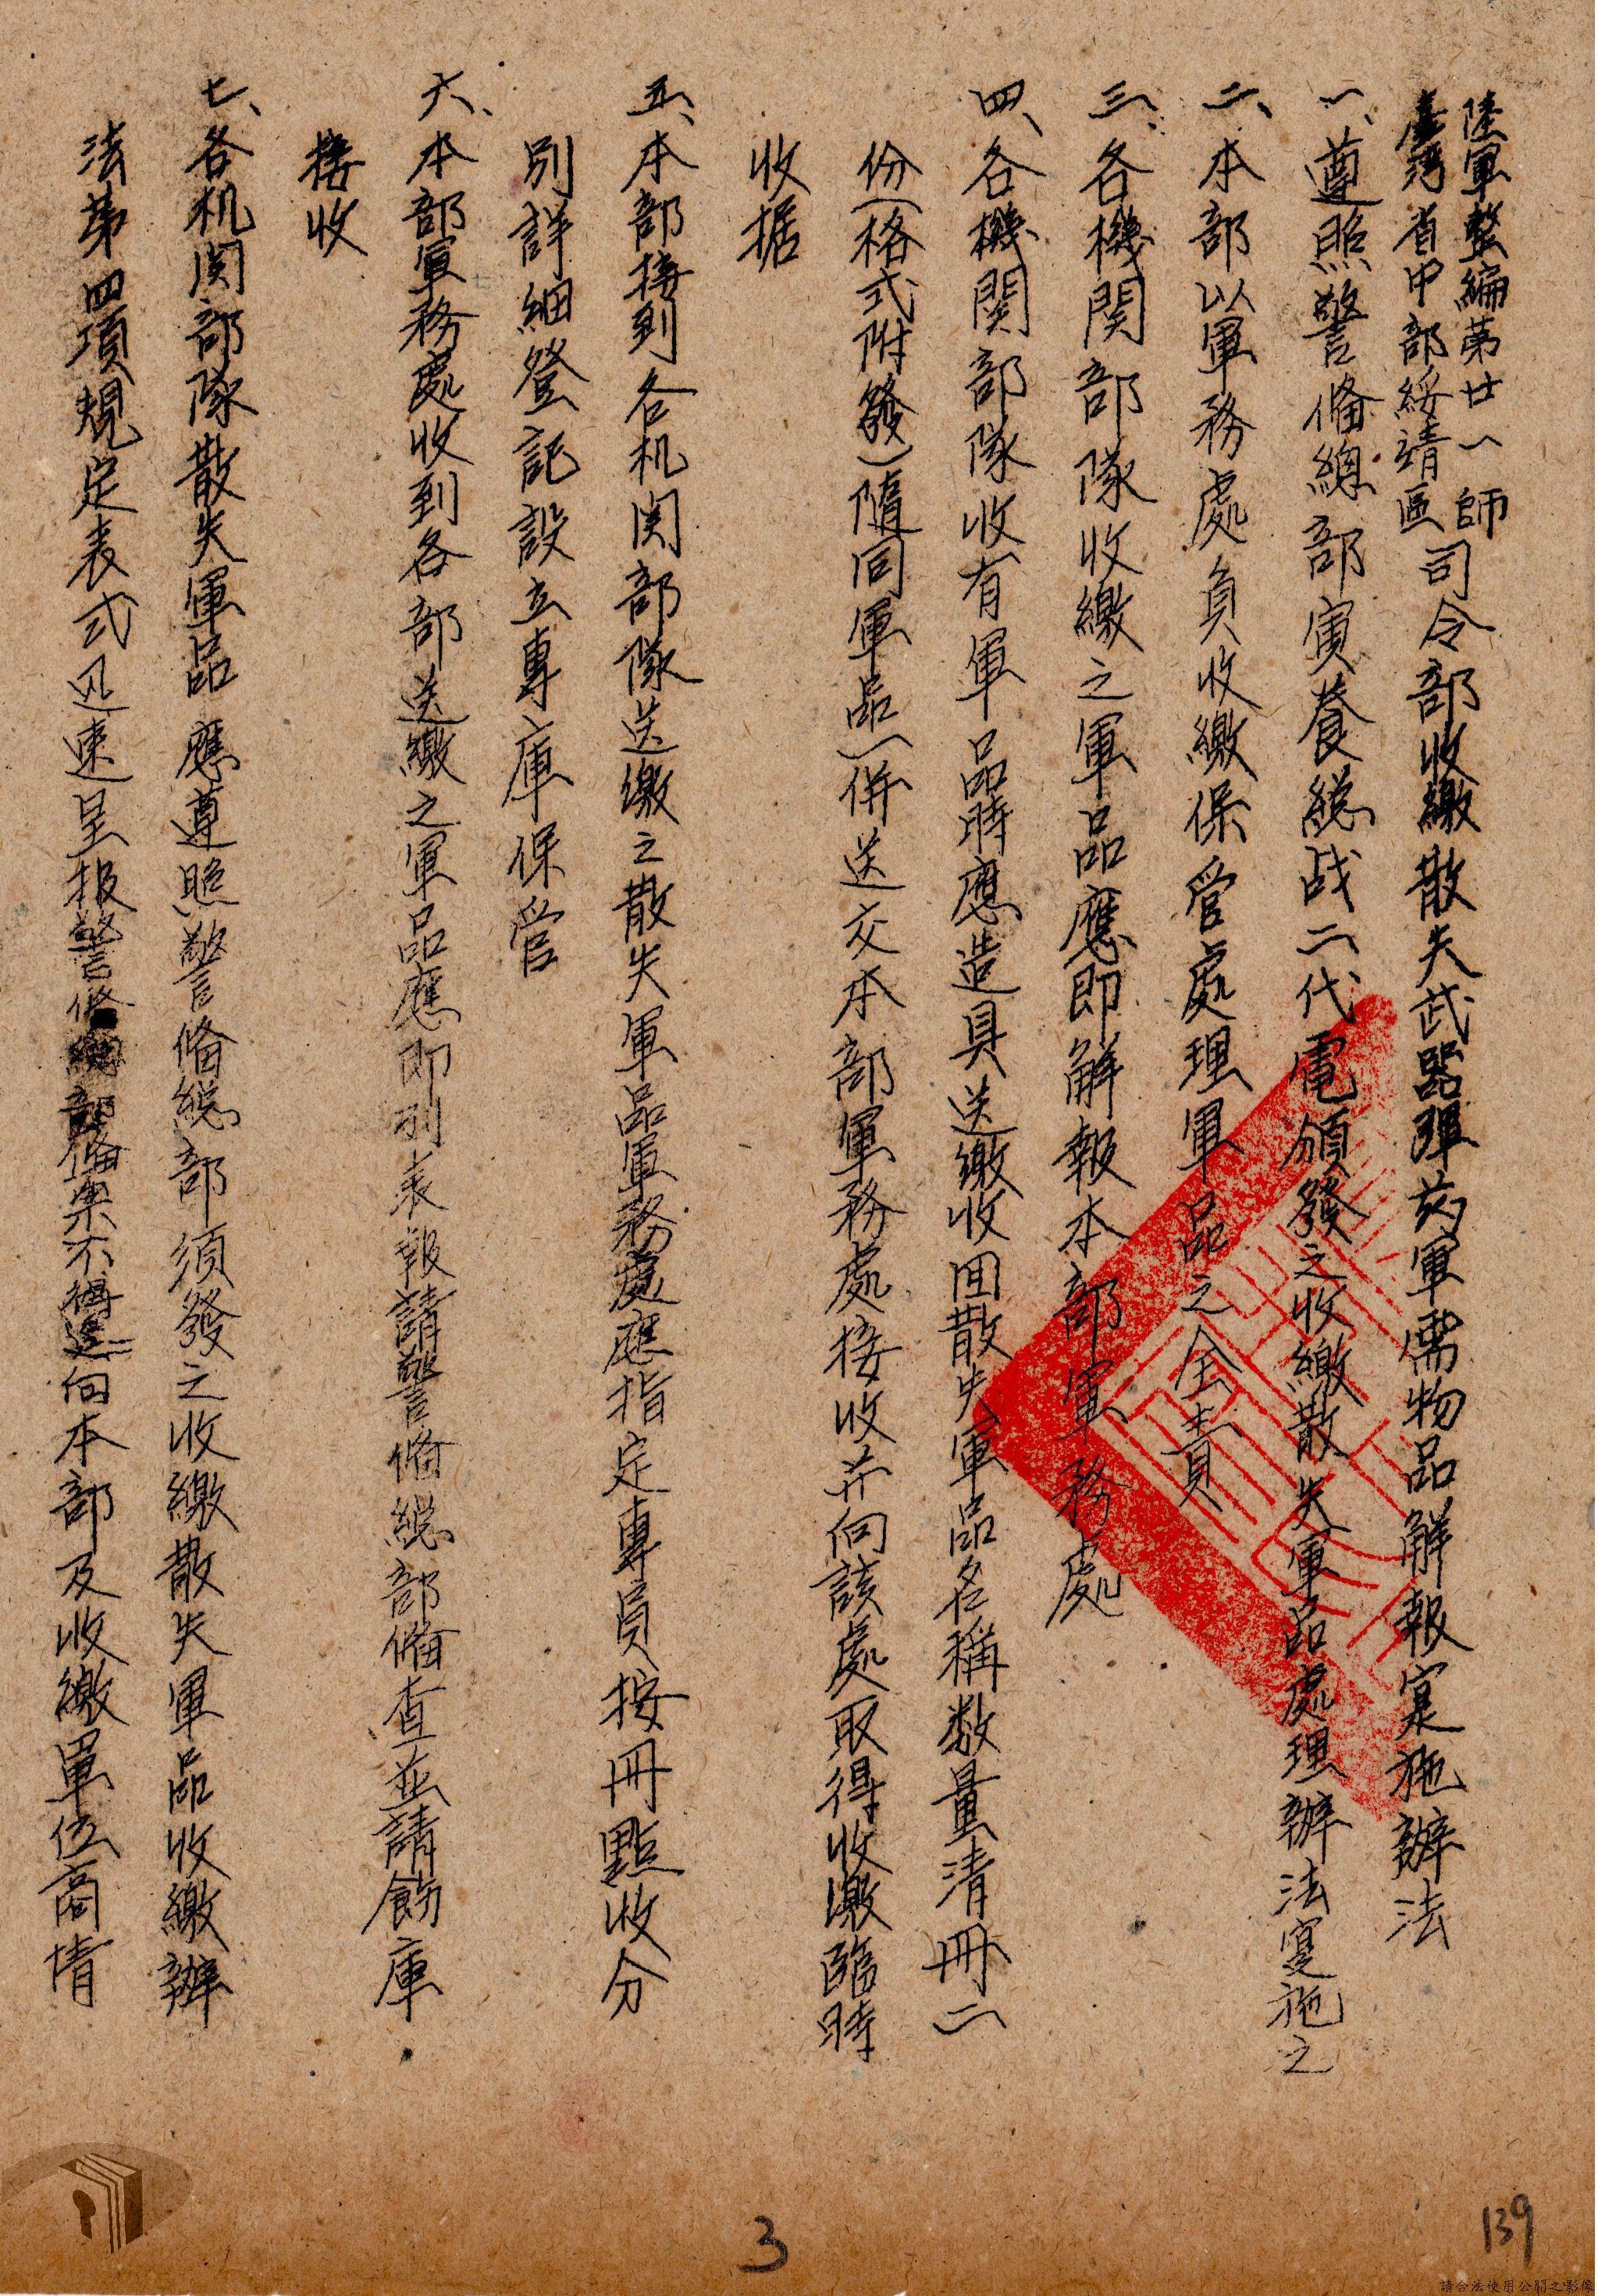 陸軍整編第廿一師
臺灣省中部綏靖區司令部收繳散失武器彈葯軍需物品解報寔施辦法
一、遵照警俻總部寅養総战二代電頒發之收繳散失軍品處理辦法寔施之
二、本部以軍務處負收繳保管處理軍品之全責
三、各機関部隊收繳之軍品應即解報本部軍務處
四、各機関部隊收有軍品時應造具送繳收囬散失軍品名稱数量清冊二
份(格式附發)隨同軍品一併送交本部軍務處接收并向該處取得收繳臨時
收据
五、本部接到各机関部隊送繳之散失軍品軍務處應指定專員按冊點收分
別詳細登記設立專庫保管
六、本部軍務處收到各部送繳之軍品應即列表報請警俻総部俻查並請飭庫
接收
七、各机関部隊散失軍品應遵照警俻総部須發之收繳散失軍品收繳辦
法第四項規定表式迅速呈报警俻總部俻案不得逕向本部及收繳單位商情
3
139
請合法使用公開之影像